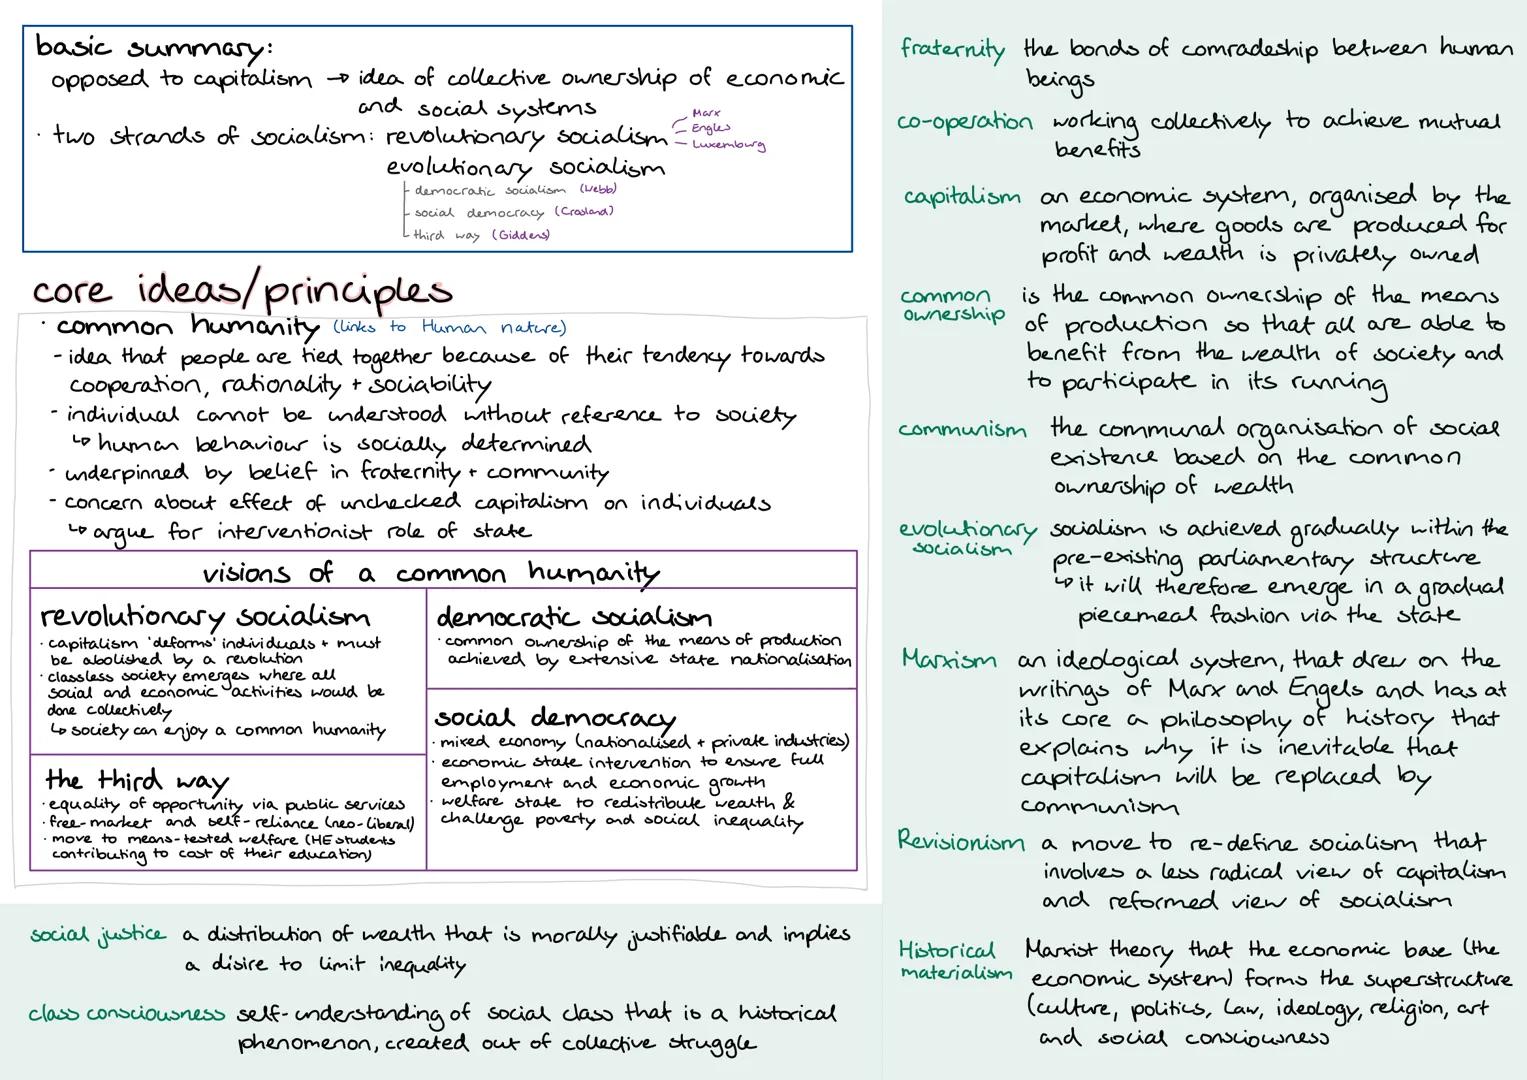 basic summary:
opposed to capitalism → idea of collective ownership of economic
and social systems
· two strands of socialism: revolutionary socialism
Marx
Engles
Luxemburg
evolutionary socialism
democratic socialism (Webb)
social democracy (Crosland)
third way (Giddens)
core ideas/principles
· common humanity (links to Human nature)
- idea that people are tied together because of their tendency towards
cooperation, rationality + sociability
- individual cannot be understood without reference to society
↳ human behaviour is socially determined
- underpinned by belief in fraternity + community
- concern about effect of unchecked capitalism on individuals
↳ argue for interventionist role of state
visions of a common humanity
revolutionary socialism
· capitalism 'deforms' individuals + must
be abolished by a revolution
· classless society emerges where all
social and economic activities would be
done collectively
↳ society can enjoy a common humanity
the third way
· equality of opportunity via public services
· free-market and self-reliance (neo-liberal)
· move to means-tested welfare (HE students
contributing to cost of their education)
democratic socialism
· common ownership of the means of production
achieved by extensive state nationalisation
social democracy
· mixed economy (nationalised + private industries)
· economic state intervention to ensure full
employment and economic growth
· welfare state to redistribute wealth &
challenge poverty and social inequality
social justice a distribution of wealth that is morally justifiable and implies
a disire to limit inequality
class consciousness self-understanding of social class that is a historical
phenomenon, created out of collective struggle
fraternity the bonds of comradeship between human
beings
co-operation working collectively to achieve mutual
benefits
capitalism an economic system, organised by the
market, where goods are produced for
profit and wealth is privately owned
common ownership is the common ownership of the means
of production so that all are able to
benefit from the wealth of society and
to participate in its running
communism the communal organisation of social
existence based on the common
ownership of wealth
evolutionary socialism socialism is achieved gradually within the
pre-existing parliamentary structure
↳ it will therefore emerge in a gradual
piecemeal fashion via the state
Marxism an ideological system, that drew on the
writings of Marx and Engels and has at
its core a philosophy of history that
explains why it is inevitable that
capitalism will be replaced by
communism
Revisionism a move to re-define socialism that
involves a less radical view of capitalism
and reformed view of socialism
Historical materialism Marxist theory that the economic base (the
economic system) forms the superstructure
(culture, politics, law, ideology, religion, art
and social consciousness